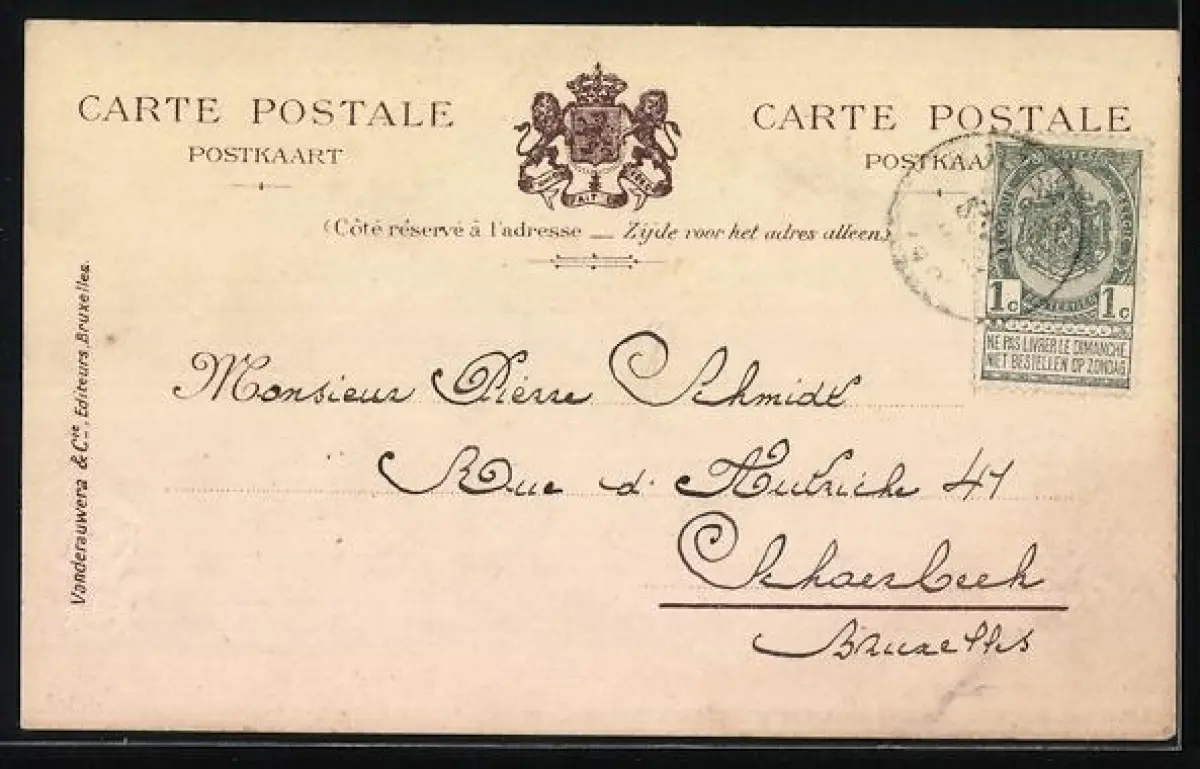 CARTE POSTALE
POSTKAART
CARTE POSTALE
POSTKAA
(Côté réservé à l'adresse — Zijde voor het adres alleen)
1c 1c
NE PAS LIVRER LE DIMANCHE
NIET BESTELLEN OP ZONDAG
Vanderauwera & Cie, Editeurs, Bruxelles.
Monsieur Pierre Schmidt
Rue d'Autriche 41
Schaerbeek
Bruxelles